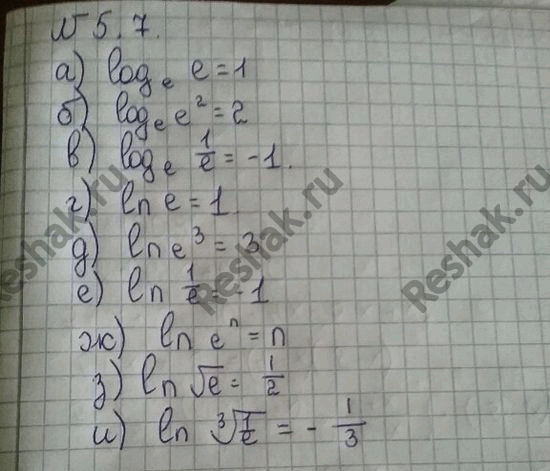 № 5.7.
а) logₑ e = 1
б) logₑ e² = 2
в) logₑ 1/e = -1.
г) ln e = 1
д) ln e³ = 3
е) ln 1/e = -1
ж) ln eⁿ = n
з) ln √e = 1/2
и) ln ∛(1/e) = - 1/3
Reshak.ru
Reshak.ru
Reshak.ru